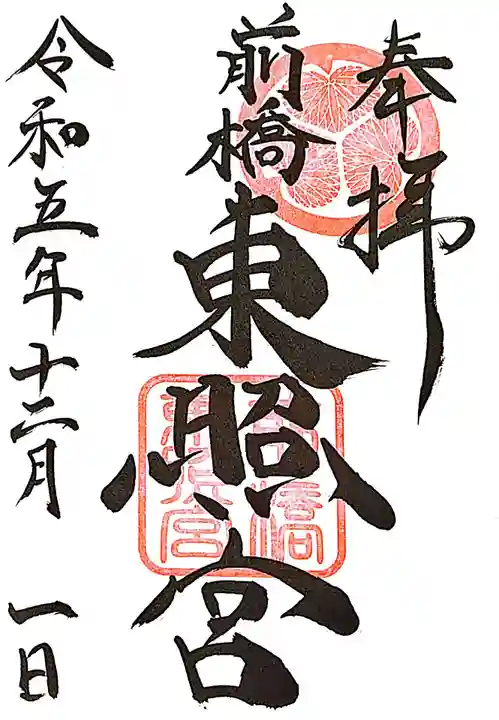 奉拝
前橋東照宮
令和五年十二月一日
前橋
東照宮